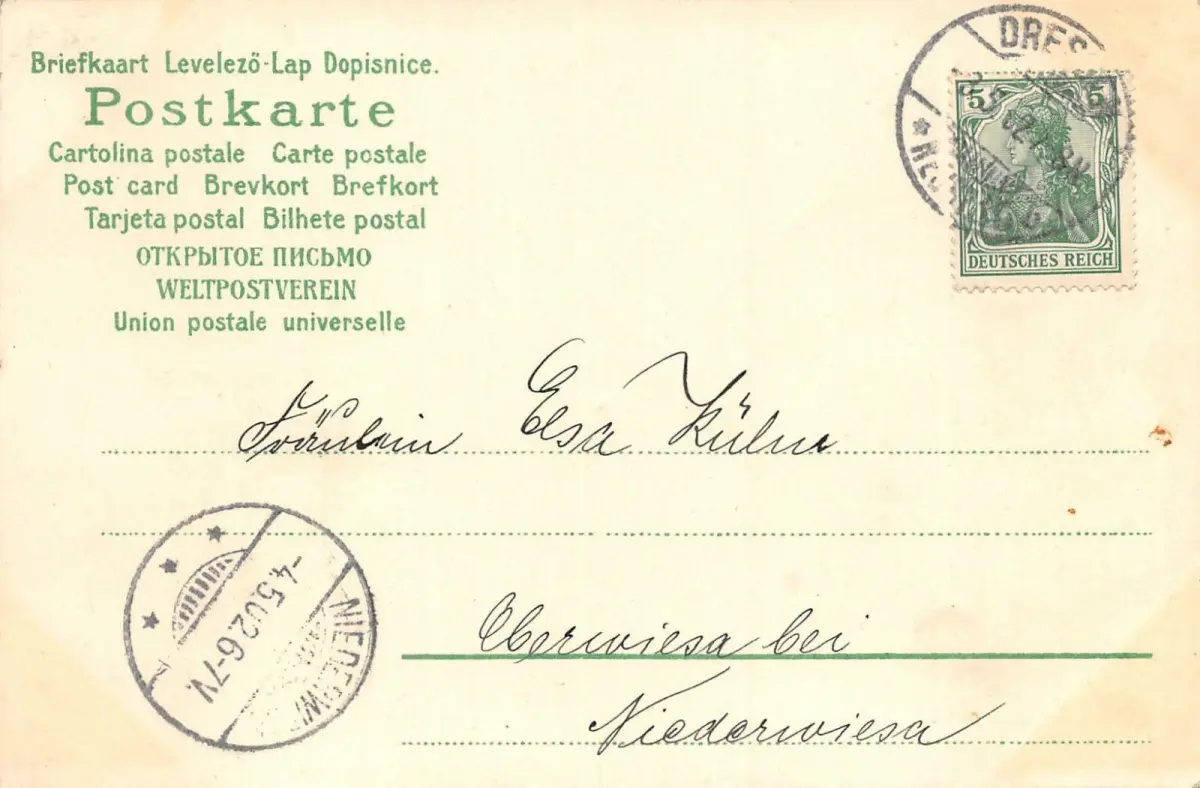 Briefkaart Levelező-Lap Dopisnice.
Postkarte
Cartolina postale Carte postale
Post card Brevkort Brefkort
Tarjeta postal Bilhete postal
ОТКРЫТОЕ ПИСЬМО
WELTPOSTVEREIN
Union postale universelle
DRES
5 5
DEUTSCHES REICH
Fräulein Elsa Kühn
-4.5.02.6-7V.
NIEDERWI
Oberwiesa bei
Niederwiesa